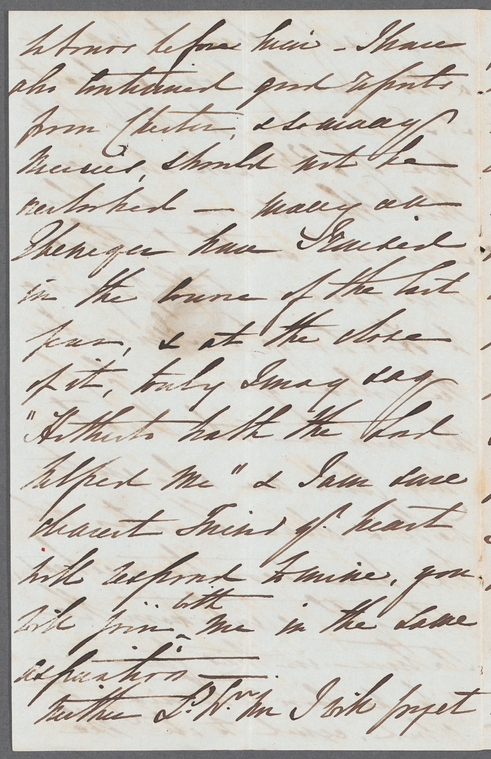 labours before him - I have
also continued good reports
from Chester, & so many
mercies, should not be
overlooked — many an
Ebenezer have I raised
in the course of the last
year, & at the close
of it, truly I may say
"Hitherto hath the Lord
helped me" & I am sure
dearest Friend yr. heart
will respond to mine, you
will join with me in the same
aspirations.
Neither Ld. Wm. nor I will forget